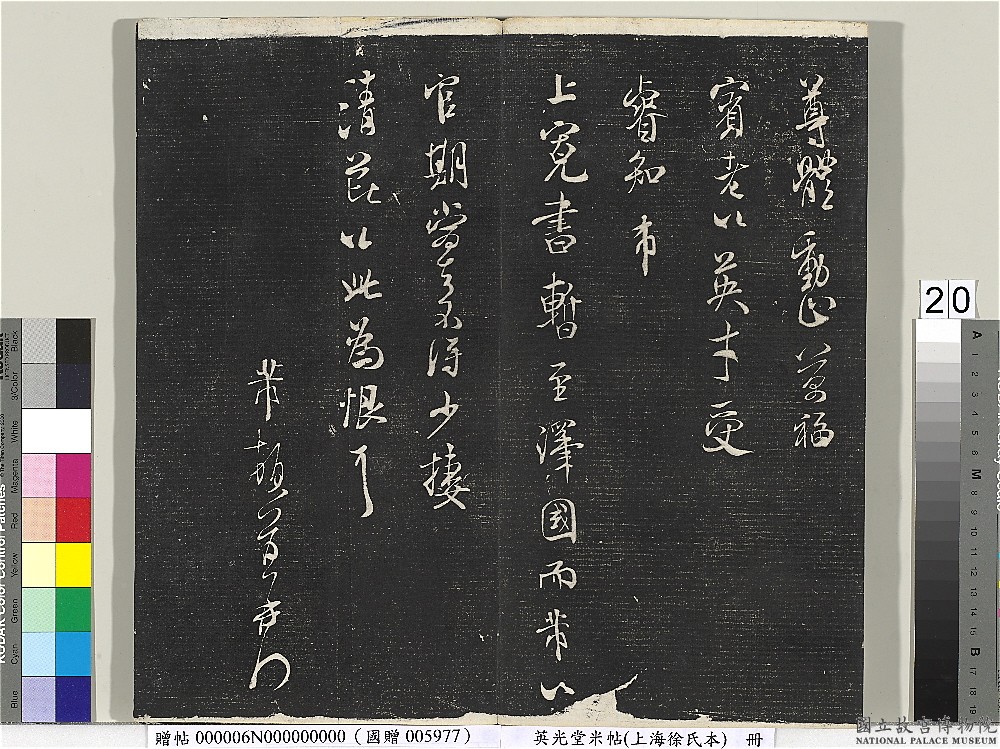 尊體動止萬福
賓老以英才受
睿知
上寬書暫至澤國而芾以
官期當去不得少接
清以此為恨
芾頓首
20
贈帖 000006N000000000 (國贈 005977)
英光堂米帖(上海徐氏本) 冊
國立故宮博物院
NATIONAL PALACE MUSEUM
Black
3/Color
White
Magenta
Red
Yellow
Green
Cyan
Blue
KODAK Color Control Patches
A
1
2
3
4
5
6
M
8
9
10
11
12
13
14
15
B
17
18
19